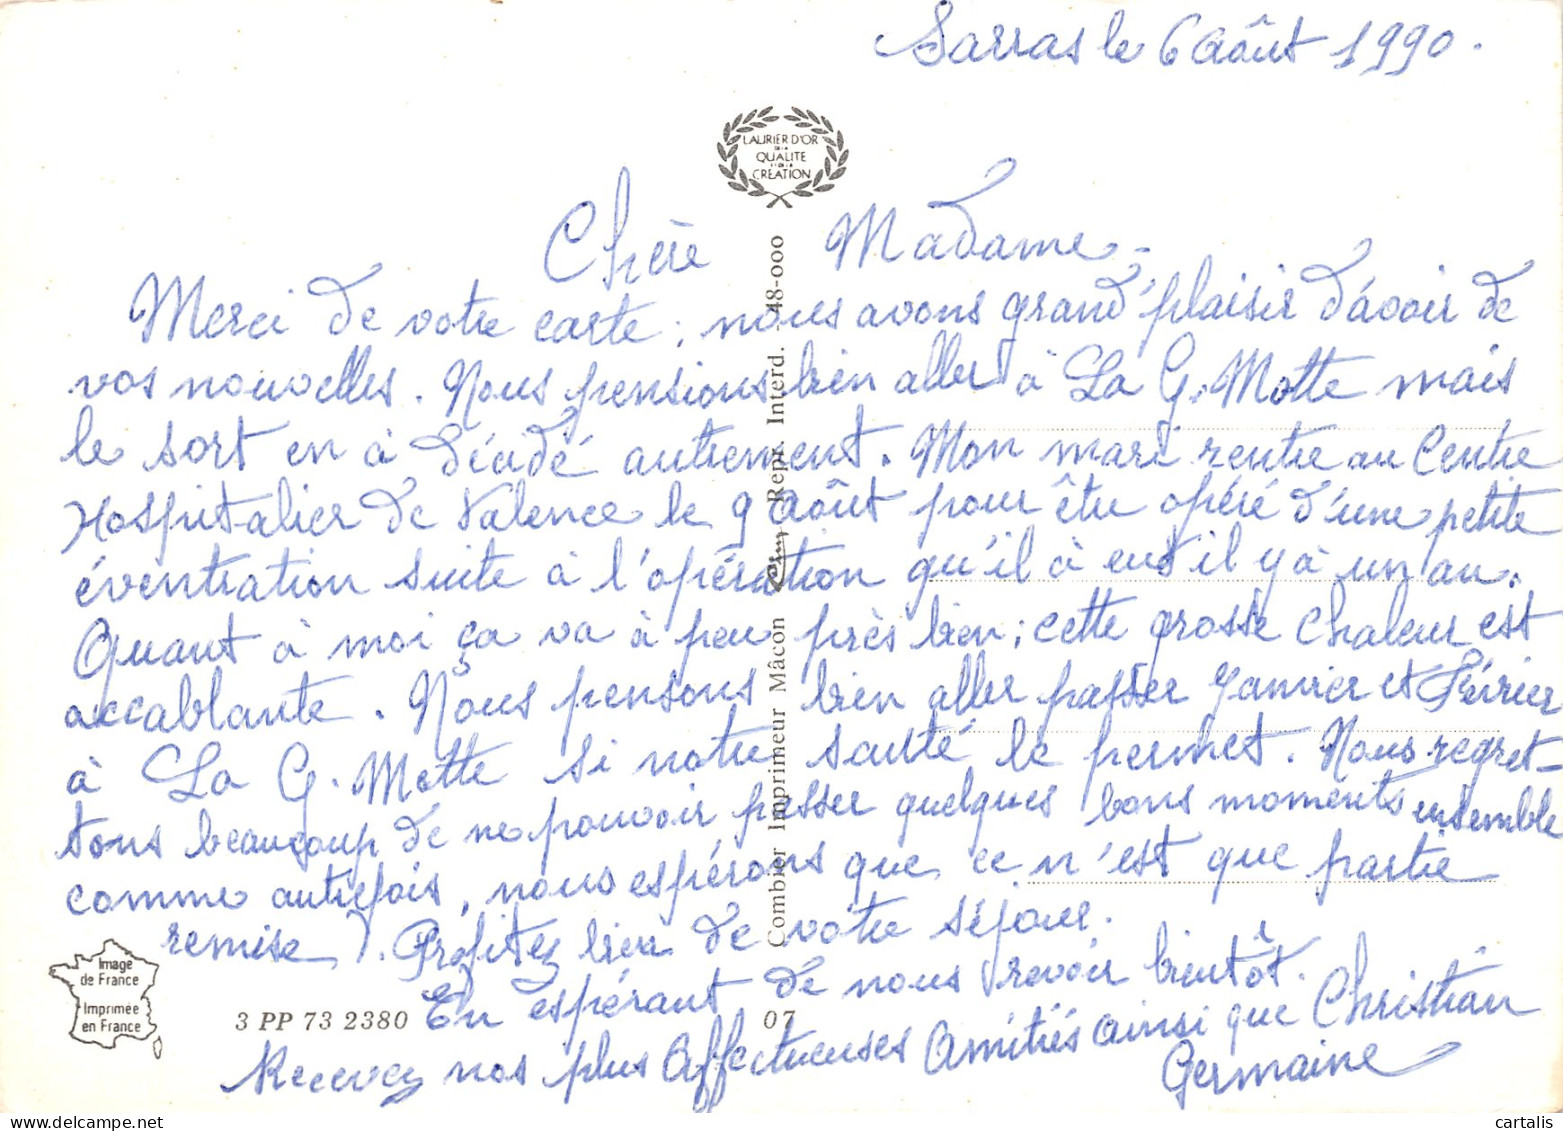 Sarras le 6 août 1990.
LAURIER D'OR
DE LA
QUALITE
ET DE LA
CREATION
Chère Madame -
Merci de votre carte ; nous avons grand plaisir d'avoir de
vos nouvelles. Nous pensions bien aller à La G. Motte mais
le sort en à décidé autrement. Mon mari rentre au Centre
Hospitalier de Valence le 9 août pour être opéré d'une petite
éventration suite à l'opération qu'il à eut il y à un an.
Quant à moi ça va à peu près bien ; cette grosse chaleur est
accablante. Nous pensons bien aller passer Janvier et Février
à La G. Motte si notre santé le permet. Nous regret-
tons beaucoup de ne pouvoir passer quelques bons moments ensemble
comme autrefois, nous espérons que ce n'est que partie
remise). Profitez bien de votre séjour.
En espérant de nous revoir bientôt.
Recevez nos plus affectueuses amitiés ainsi que Christian
Germaine
Combier Imprimeur Mâcon Repr. Interd. 48-000
Image
de France
Imprimée
en France
3 PP 73 2380
07
cartalis